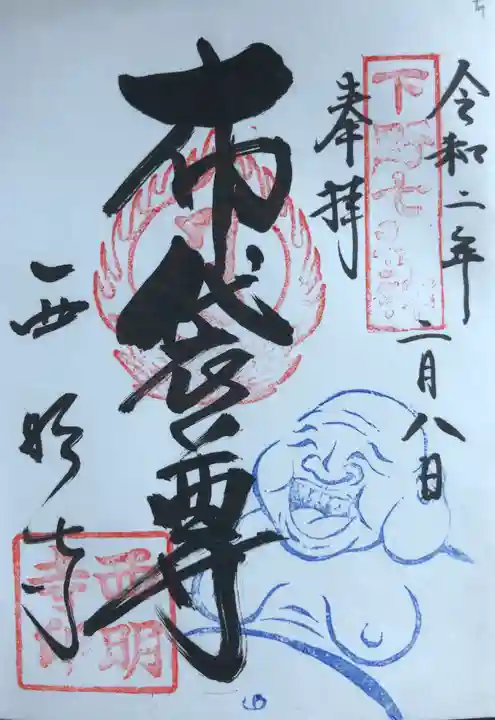 令和二年
二月八日
奉拝
下野七福神
布袋尊
西明寺
西明
寺印